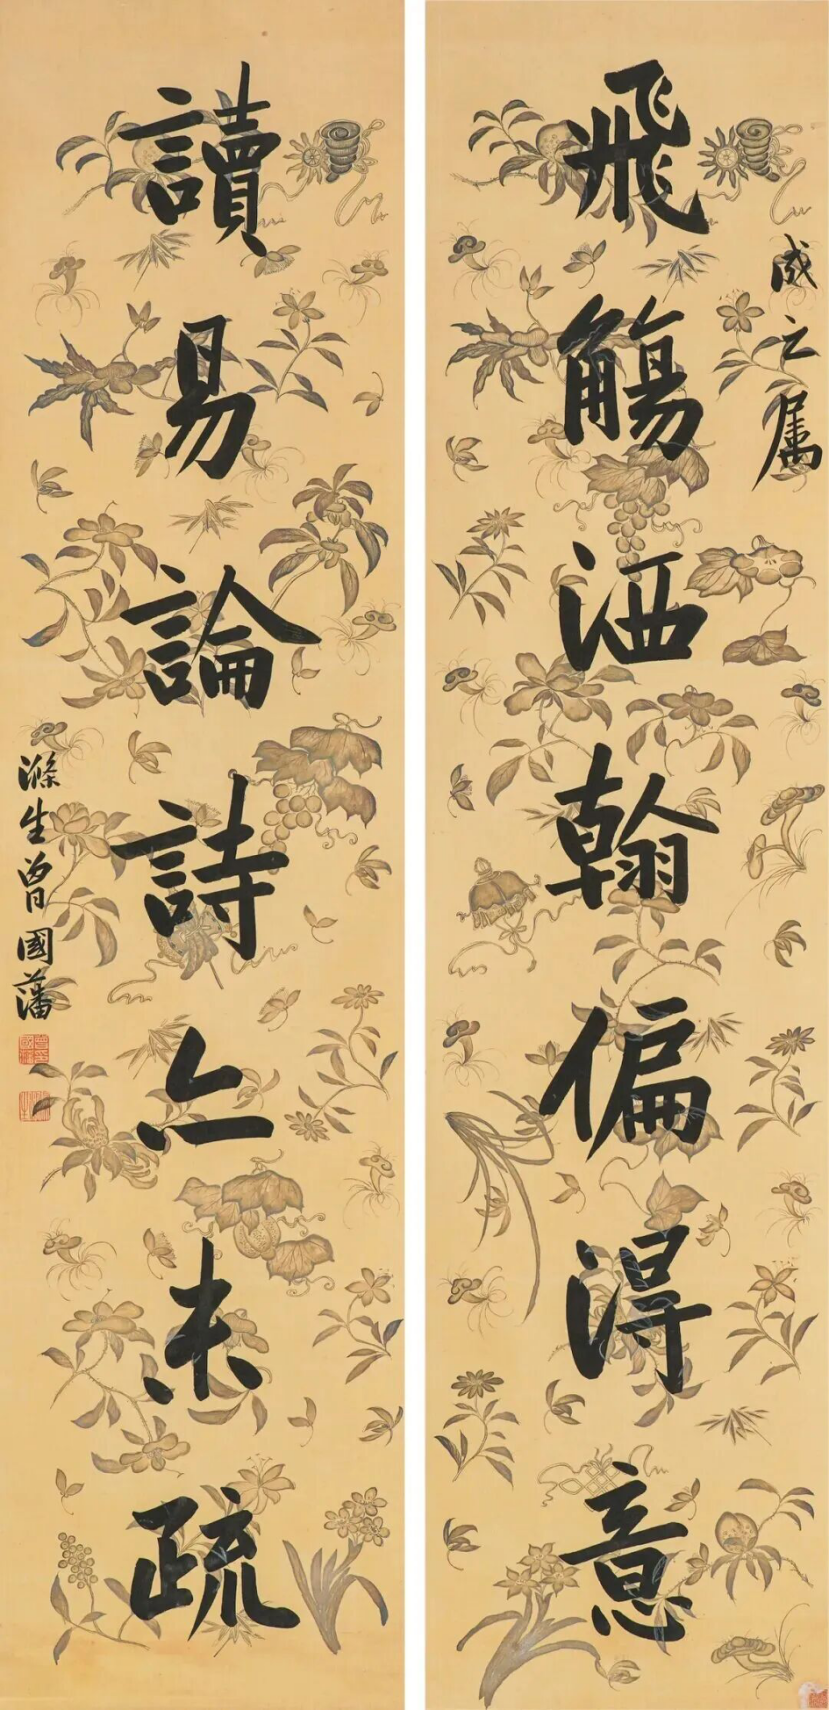 成之属
飛觴洒翰偏得意
讀易論詩亦未疏
滌生曾國藩